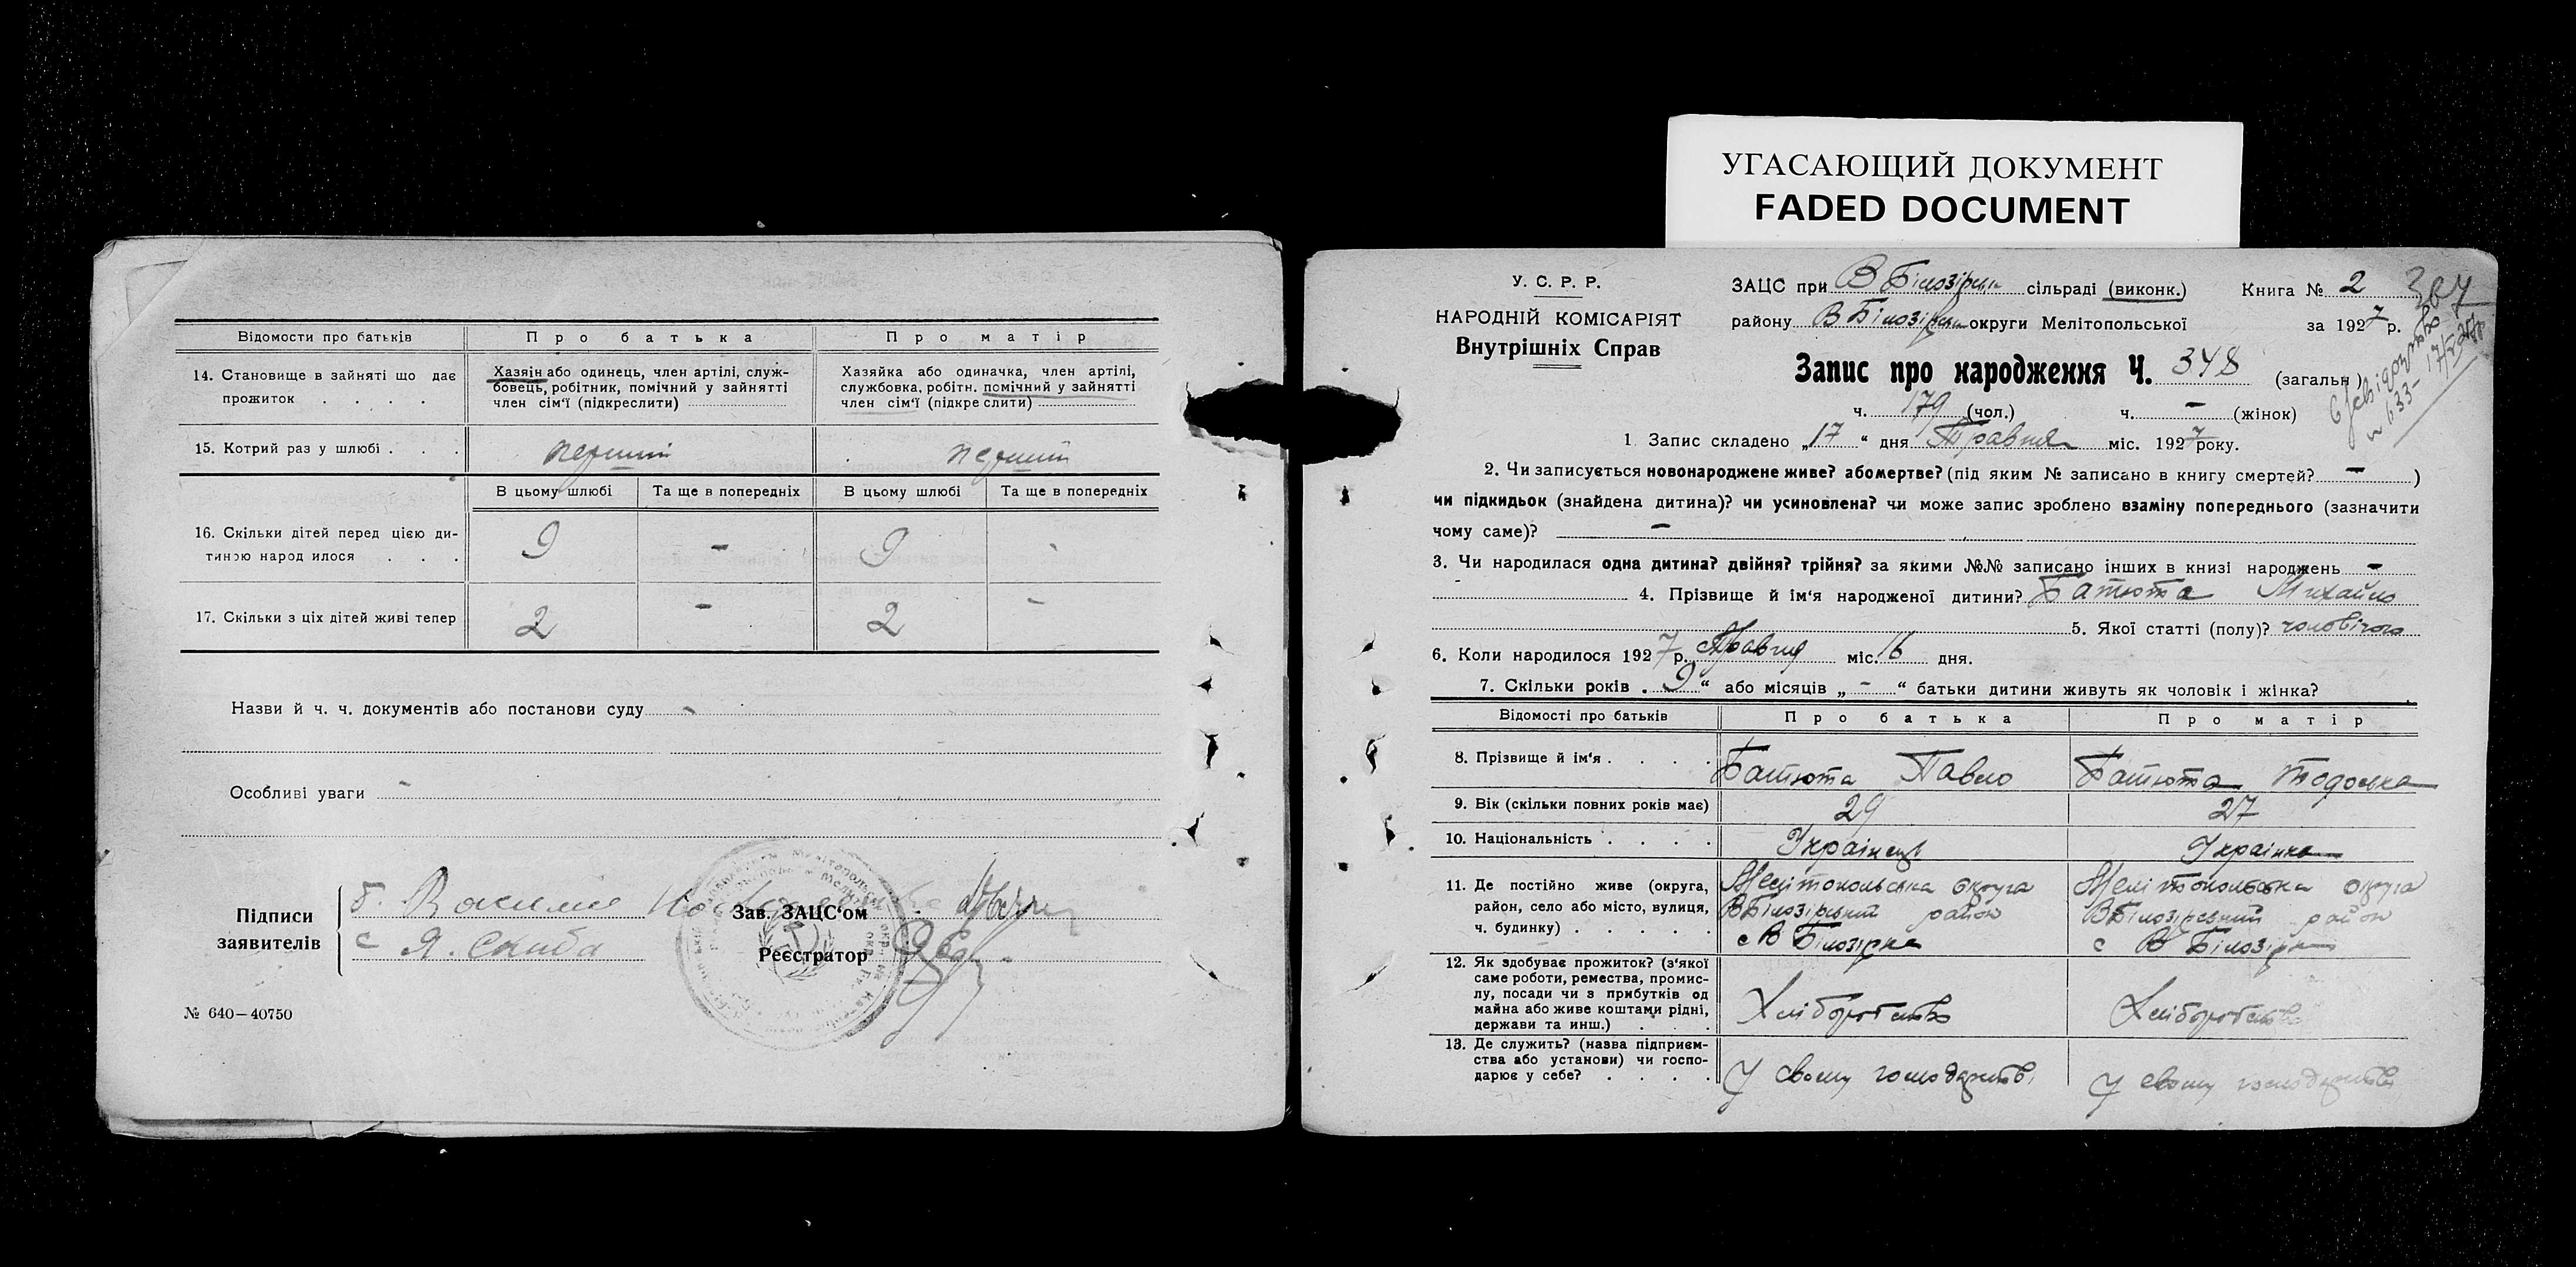 УГАСАЮЩИЙ ДОКУМЕНТ
FADED DOCUMENT
Відомости про батьків
Про батька
Про матір
14. Становище в зайняті що дає прожиток . . . .
Хазяїн або одинець, член артілі, служ-
бовець, робітник, помічний у зайнятті
член сім'ї (підкреслити)
Хазяйка або одиначка, член артілі,
службовка, робітн. помічний у зайнятті
член сім'ї (підкреслити)
15. Котрий раз у шлюбі . . .
перший
перший
В цьому шлюбі
Та ще в попередніх
В цьому шлюбі
Та ще в попередніх
16. Скільки дітей перед цією ди-
тиною народилося . . .
9 - 9 -
17. Скільки з ціх дітей живі тепер
2 - 2 -
Назви й ч. ч. документів або постанови суду -
Особливі уваги -
Підписи
заявителів
Я. Скиба
Зав. ЗАЦС'ом
Реєстратор
№ 640—40750
У. С. Р. Р.
НАРОДНІЙ КОМІСАРІЯТ
Внутрішніх Справ
ЗАЦС при В Білозірськ сільраді (виконк.) Книга № 2
району В Білозірськ округи Мелітопольської за 1927 р.
Запис про народження Ч. 348 (загальн.)
ч. 179 (чол.) ч. - (жінок)
1 Запис складено „17“ дня Травня міс. 1927 року.
2. Чи записується новонароджене живе? або мертве? (під яким № записано в книгу смертей? - )
чи підкидьок (знайдена дитина)? чи усиновлена? чи може запис зроблено взаміну попереднього (зазначити
чому саме)? -
3. Чи народилася одна дитина? двійня? трійня? за якими №№ записано інших в книзі народжень -
4. Прізвище й ім'я народженої дитини? Батюта Михайло
5. Якої статті (полу)? чоловічого
6. Коли народилося 1927 р. Травня міс. 16 дня.
7. Скільки років „9“ або місяців „-“ батьки дитини живуть як чоловік і жінка?
Відомості про батьків
Про батька
Про матір
8. Прізвище й ім'я . . . .
Батюта Павло
Батюта Тодоська
9. Вік (скільки повних років має)
29
27
10. Національність . . . .
Українець
Українка
11. Де постійно живе (округа,
район, село або місто, вулиця,
ч. будинку) . . . . .
Мелітопольська округа
В Білозірський район
с В Білозірка
Мелітопольська округа
В Білозірський район
с В Білозірка
12. Як здобуває прожиток? (з'якої
саме роботи, ремества, промис-
лу, посади чи з прибутків од
майна або живе коштами рідні,
держави та инш.) . . .
Хліборобство
Хліборобство
13. Де служить? (назва підприєм-
ства або установи) чи госпо-
дарює у себе? . . . .
У своему господарстві
У своему господарстві